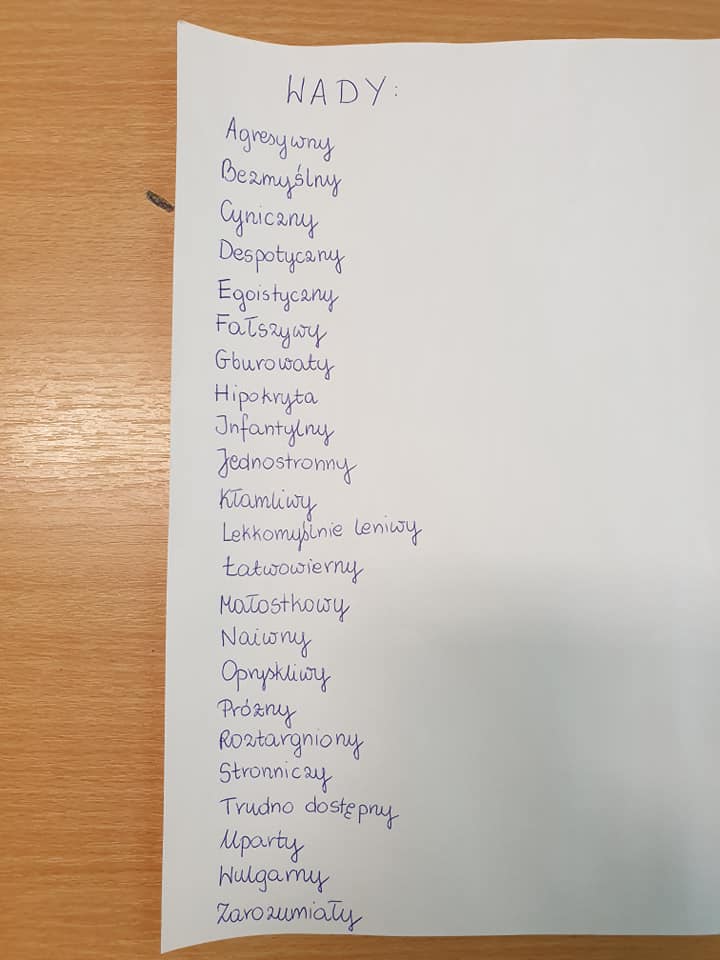 WADY:
Agresywny
Bezmyślny
Cyniczny
Despotyczny
Egoistyczny
Fałszywy
Gburowaty
Hipokryta
Infantylny
Jednostronny
Kłamliwy
Lekkomyślnie leniwy
Łatwowierny
Małostkowy
Naiwny
Opryskliwy
Próżny
Roztargniony
Stronniczy
Trudno dostępny
Uparty
Wulgarny
Zarozumiały